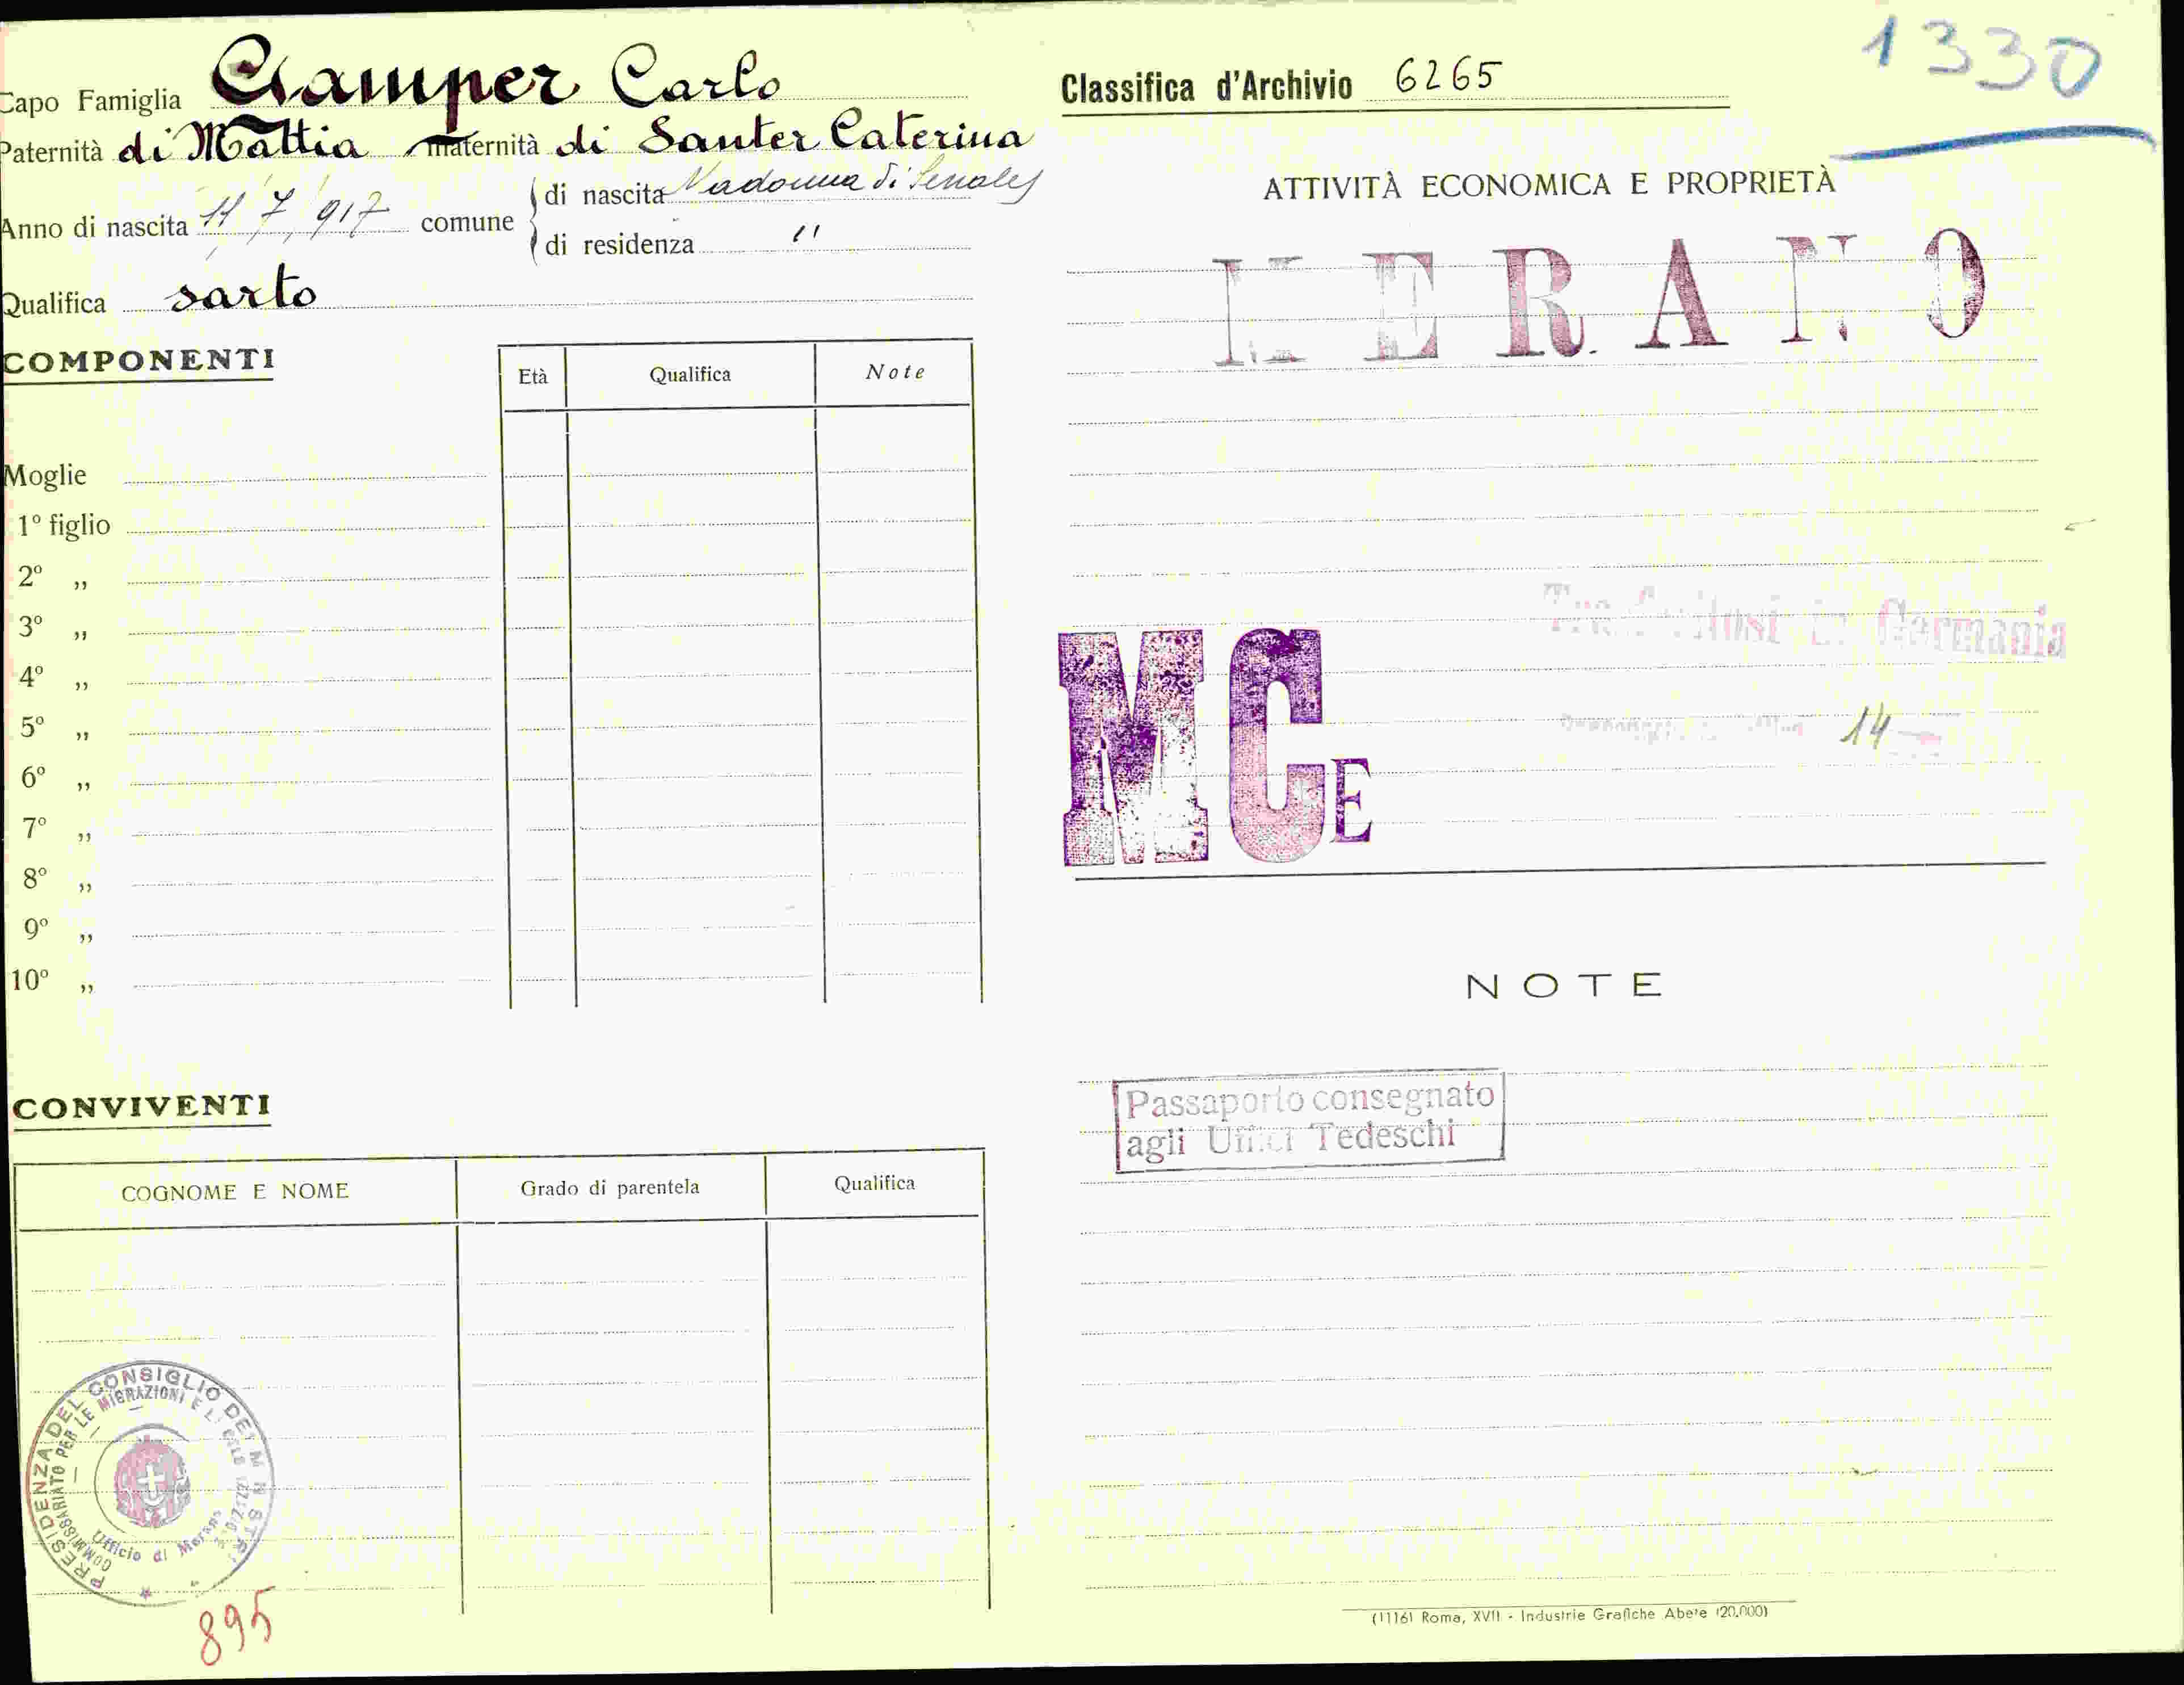 Capo Famiglia Gamper Carlo
Paternità di Mattia maternità di Santer Caterina
Anno di nascita 11/7/917 comune
di nascita Madonna di Senales
di residenza "
Qualifica sarto
COMPONENTI
Età Qualifica Note
Moglie
1º figlio
2º „
3º „
4º „
5º „
6º „
7º „
8º „
9º „
10º „
CONVIVENTI
COGNOME E NOME Grado di parentela Qualifica
PRESIDENZA DEL CONSIGLIO DEI MINISTRI
COMMISSARIATO PER LE MIGRAZIONI E
Ufficio di Merano
895
1330
Classifica d'Archivio 6265
ATTIVITÀ ECONOMICA E PROPRIETÀ
MERANO
in Germania
14
MCE
NOTE
Passaporto consegnato
agli Uffici Tedeschi
(1116) Roma, XVII - Industrie Grafiche Abete (20.000)